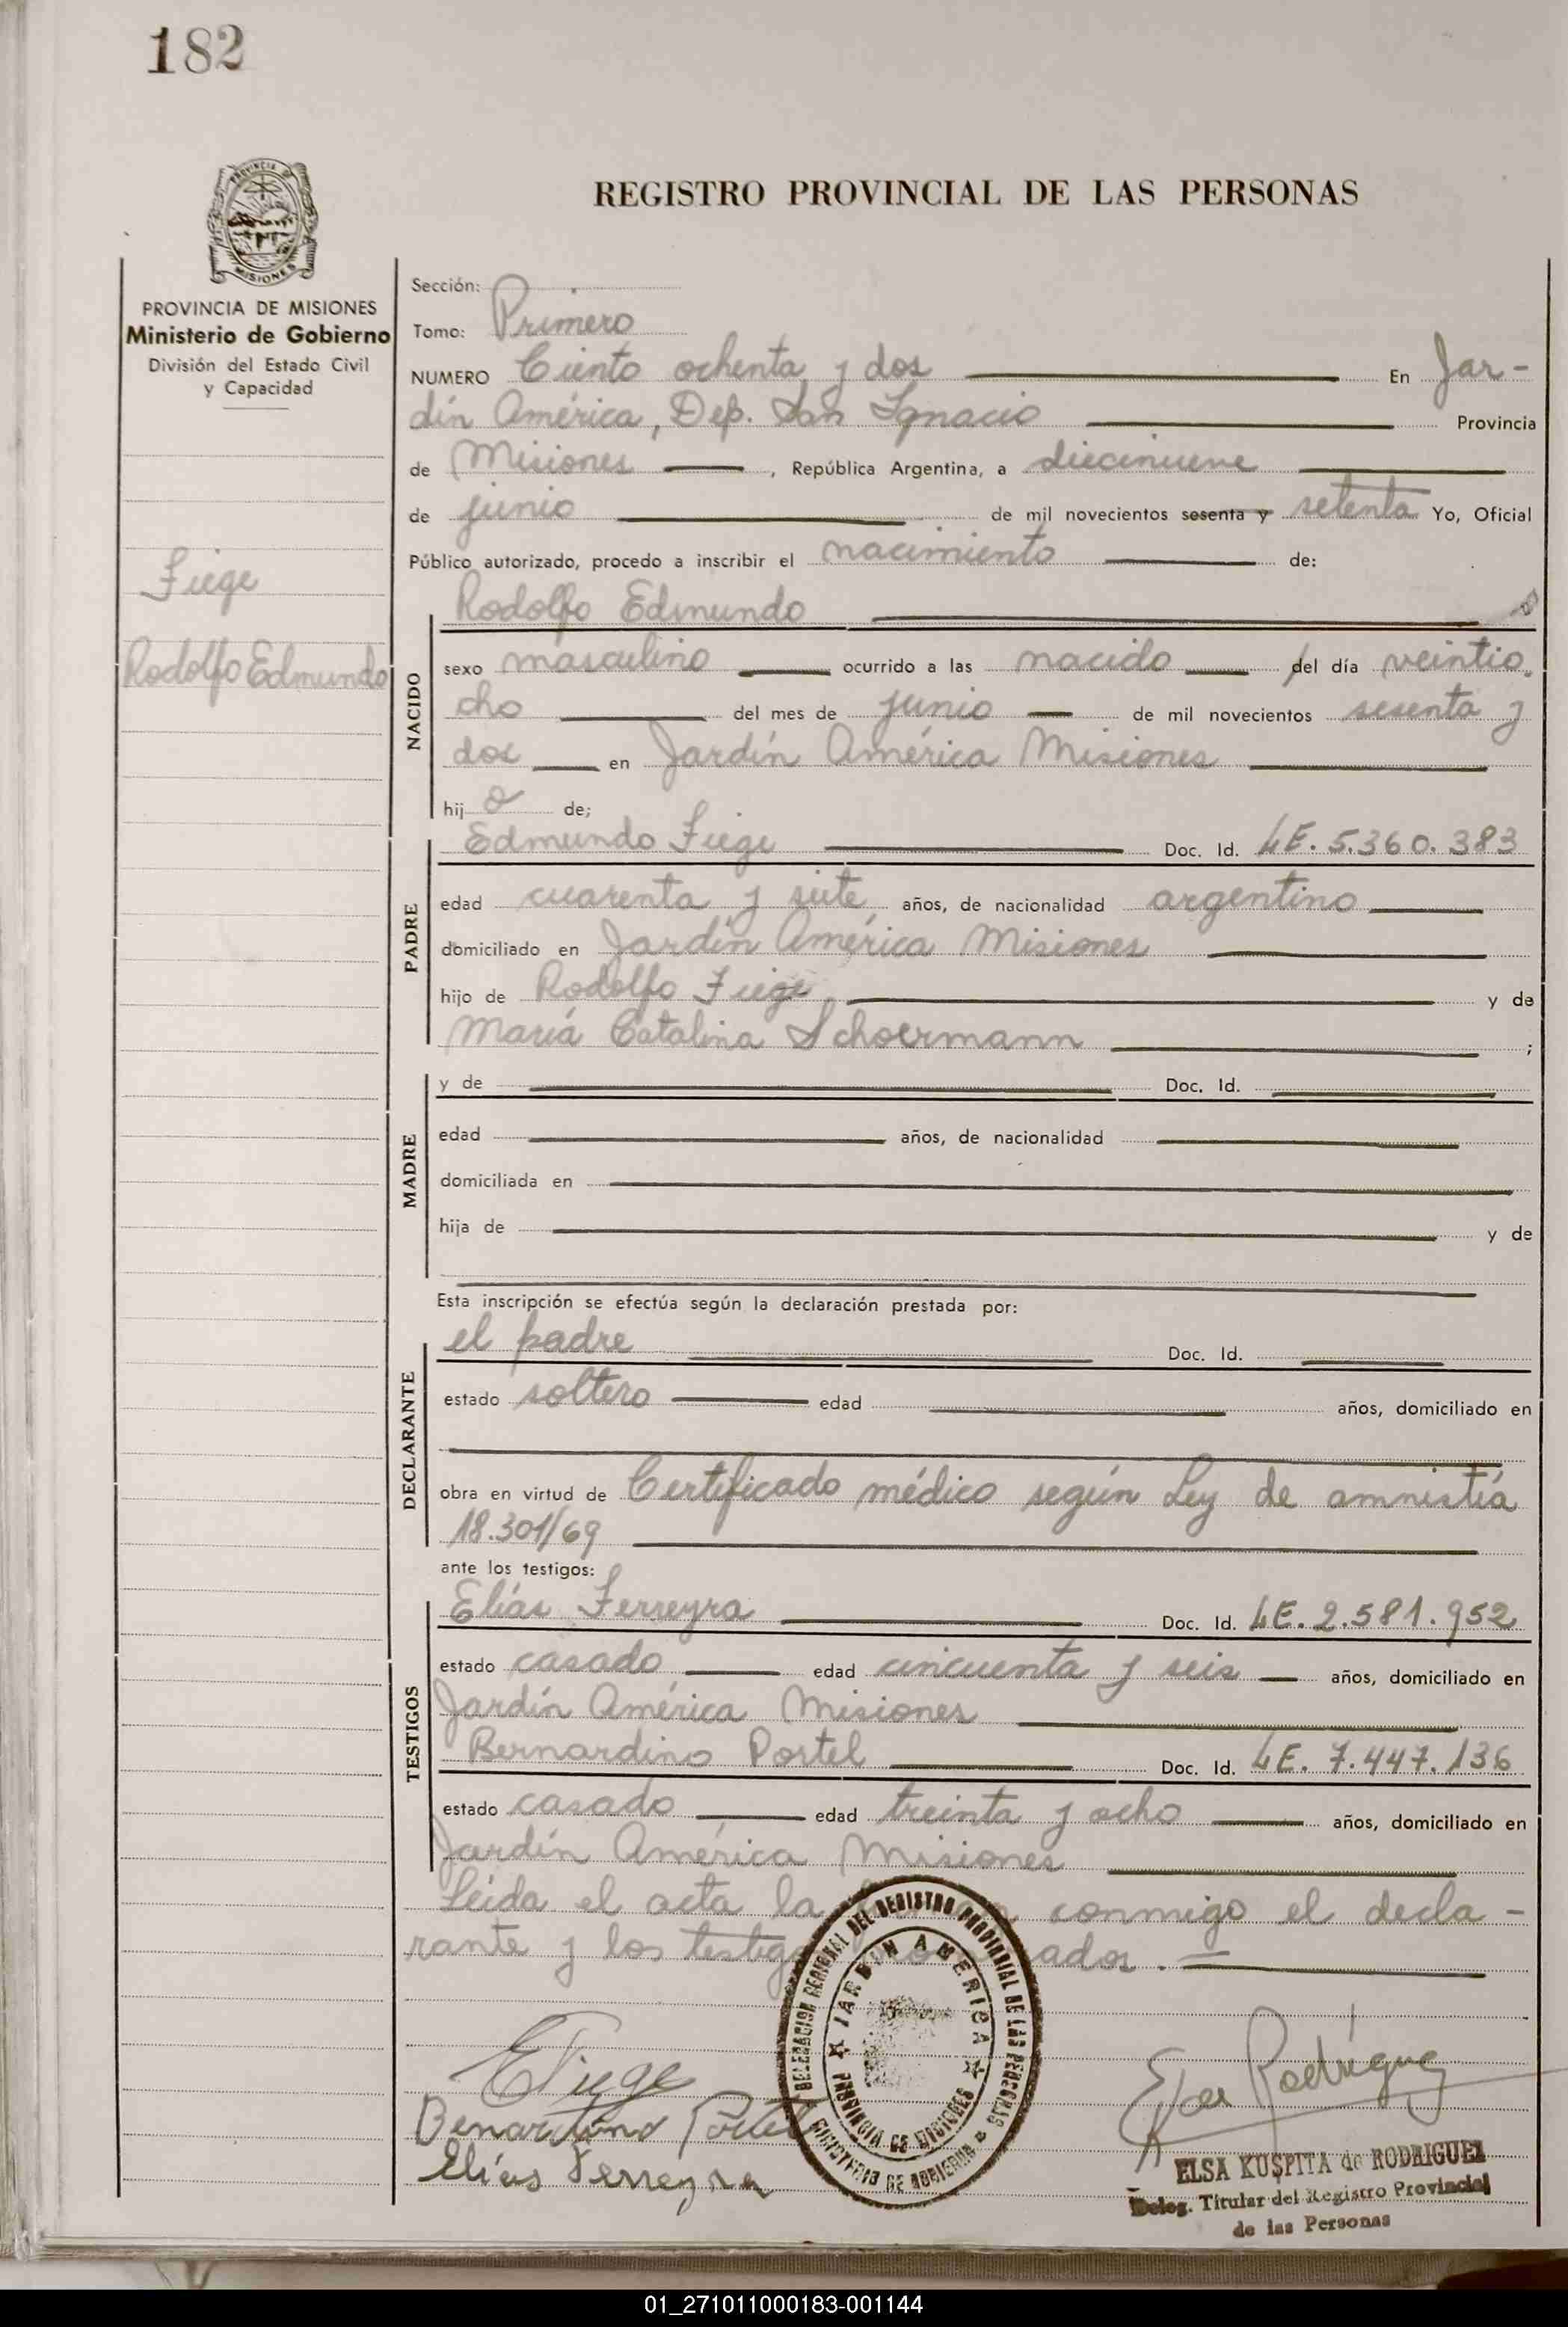 182
PROVINCIA DE
MISIONES
REGISTRO PROVINCIAL DE LAS PERSONAS
PROVINCIA DE MISIONES
Ministerio de Gobierno
División del Estado Civil
y Capacidad
Fiege
Rodolfo Edmundo
Sección:
Tomo: Primero
NUMERO Ciento ochenta y dos En Jar-
dín América, Dep. San Ignacio Provincia
de Misiones, República Argentina, a diecinueve
de junio de mil novecientos sesenta y setenta Yo, Oficial
Público autorizado, procedo a inscribir el nacimiento de:
Rodolfo Edmundo
NACIDO
sexo masculino ocurrido a las nacido del día veintio
cho del mes de junio de mil novecientos sesenta y
dos en Jardín América Misiones
hij o de;
PADRE
Edmundo Fiege Doc. Id. LE. 5.360.383
edad cuarenta y siete años, de nacionalidad argentino
domiciliado en Jardín América Misiones
hijo de Rodolfo Fiege y de
María Catalina Schoermann ;
MADRE
y de Doc. Id.
edad años, de nacionalidad
domiciliada en
hija de y de
Esta inscripción se efectúa según la declaración prestada por:
DECLARANTE
el padre Doc. Id.
estado soltero edad años, domiciliado en
obra en virtud de Certificado médico según Ley de amnistía
18.301/69
ante los testigos:
TESTIGOS
Elías Ferreyra Doc. Id. LE. 2.581.952
estado casado edad cincuenta y seis años, domiciliado en
Jardín América Misiones
Bernardino Portel Doc. Id. LE. 7.447.136
estado casado edad treinta y ocho años, domiciliado en
Jardín América Misiones
Leída el acta la conmigo el decla-
rante y los testigos .
DELEGACION REGIONAL DEL REGISTRO PROVINCIAL DE LAS PERSONAS
MINISTERIO DE GOBIERNO
JARDIN AMERICA
PROVINCIA DE MISIONES
EFiege
Benardino Portel
Elías Ferreyra
Elsa Rodríguez
ELSA KUSPITA de RODRIGUEZ
Deleg. Titular del Registro Provincial
de las Personas
01_271011000183-001144